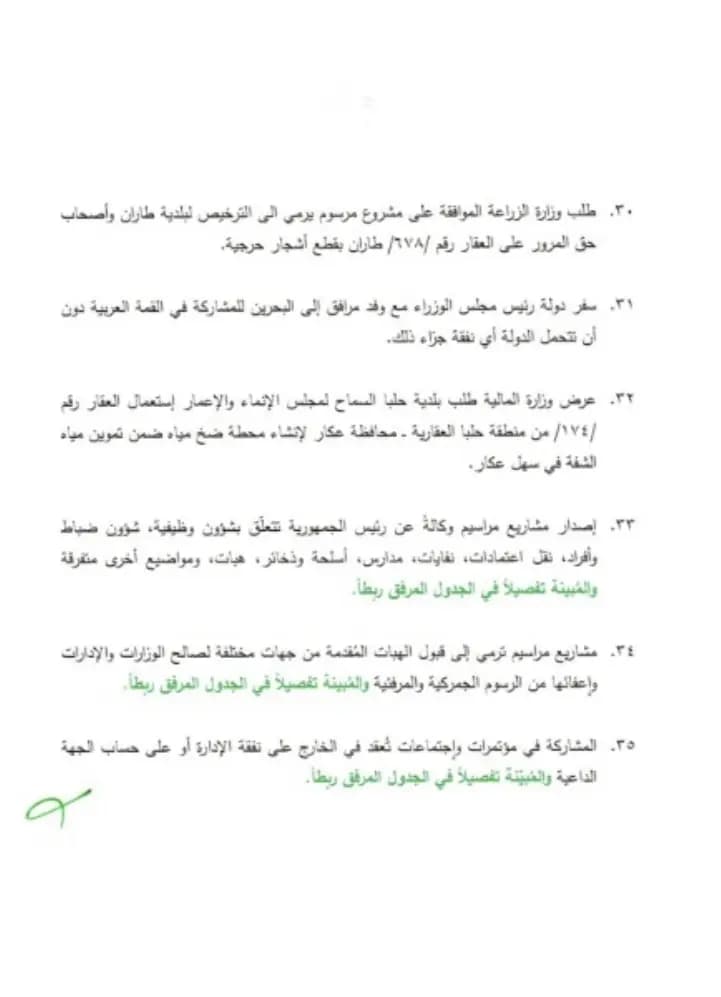 ٣٠. طلب وزارة الزراعة الموافقة على مشروع مرسوم يرمي الى الترخيص لبلدية طاران وأصحاب
حق المرور على العقار رقم /٦٧٨/ طاران بقطع أشجار حرجية.
٣١. سفر دولة رئيس مجلس الوزراء مع وفد مرافق إلى البحرين للمشاركة في القمة العربية دون
أن تتحمل الدولة أي نفقة جرّاء ذلك.
٣٢. عرض وزارة المالية طلب بلدية حلبا السماح لمجلس الإنماء والإعمار إستعمال العقار رقم
/١٧٤/ من منطقة حلبا العقارية ـ محافظة عكار لإنشاء محطة ضخ مياه ضمن تموين مياه
الشفة في سهل عكار.
٣٣. إصدار مشاريع مراسيم وكالةً عن رئيس الجمهورية تتعلّق بشؤون وظيفية، شؤون ضباط
وأفراد، نقل اعتمادات، نفايات، مدارس، أسلحة وذخائر، هبات، ومواضيع أخرى متفرقة
والمُبينة تفصيلاً في الجدول المرفق ربطاً.
٣٤. مشاريع مراسيم ترمي إلى قبول الهبات المُقدمة من جهات مختلفة لصالح الوزارات والإدارات
وإعفائها من الرسوم الجمركية والمرفئية والمُبينة تفصيلاً في الجدول المرفق ربطاً.
٣٥. المشاركة في مؤتمرات وإجتماعات تُعقد في الخارج على نفقة الإدارة أو على حساب الجهة
الداعية والمُبيّنة تفصيلاً في الجدول المرفق ربطاً.